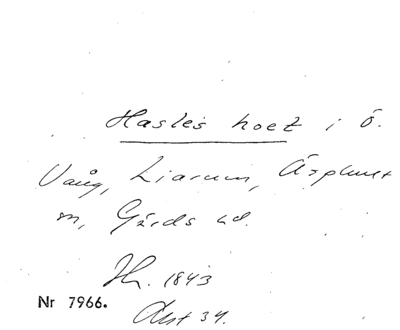 Hasles hoet i Ö.
Vång, Liarum, Äsphult
sn, Gärds hd.
Hh. 1843
Nr 7966.
Avst 34.